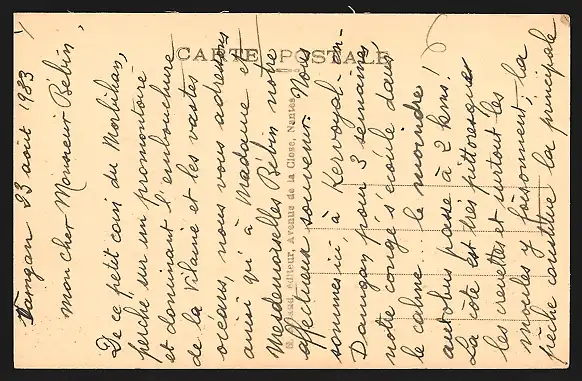 CARTE POSTALE
Damgan 23 août 1933
Mon cher Monsieur Bébin,
De ce petit coin du Morbihan,
perché sur un promontoire
et dominant l'embouchure
de la Vilaine et les vastes
océans, nous vous adressons
ainsi qu'à Madame et
Mesdemoiselles Bébin notre
affectueux souvenir. Nous
sommes ici, à Kervoyal en
Damgan pour 3 semaines,
notre congé s'écoule dans
le calme... le moindre
autobus passe à 2 kms!
La côte est très pittoresque
les crevettes et surtout les
moules y foisonnent, la
pêche constitue la principale
éditeur, Avenue de la Close, Nantes